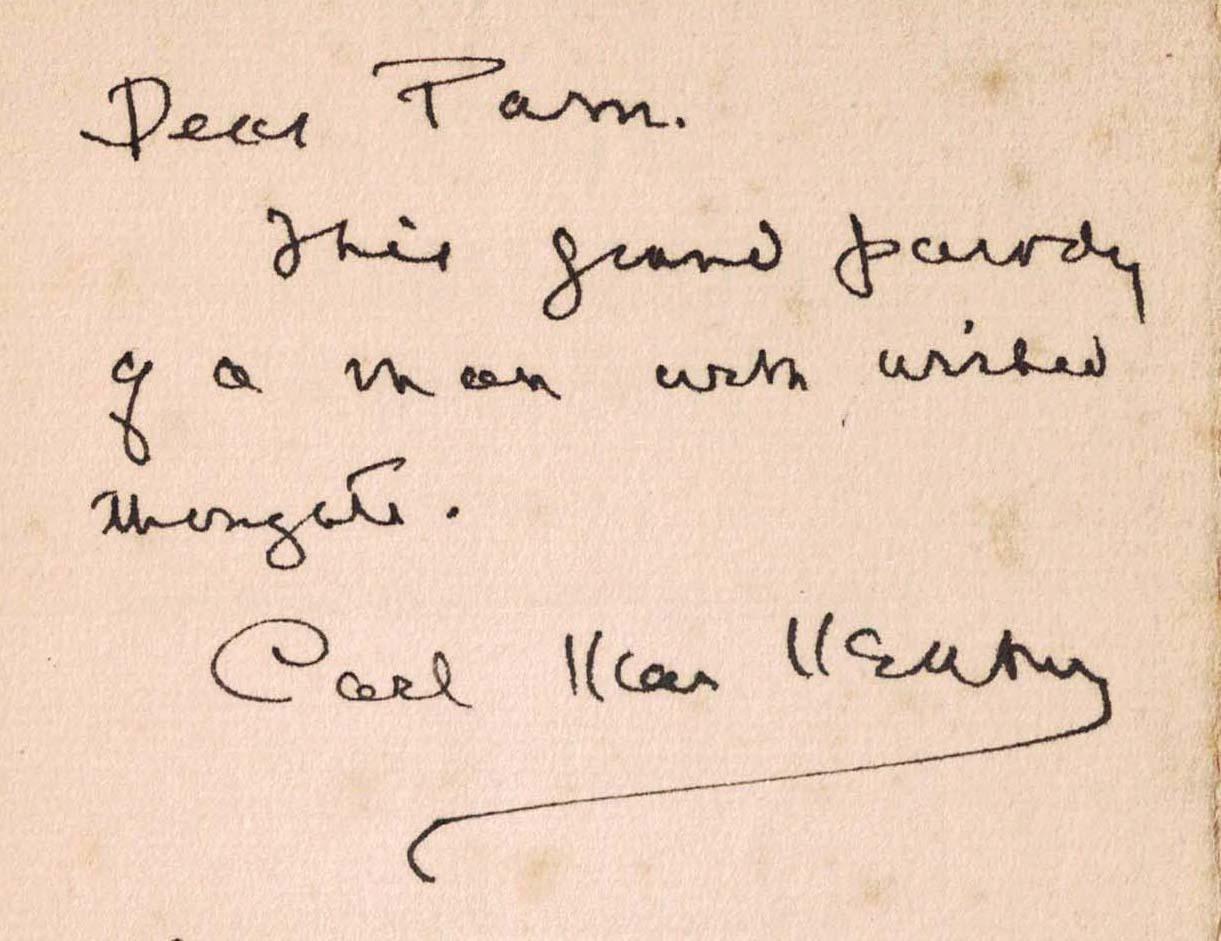 Dear Pam.
This grand parody
of a man with wicked
thoughts.
Carl Van Vechten